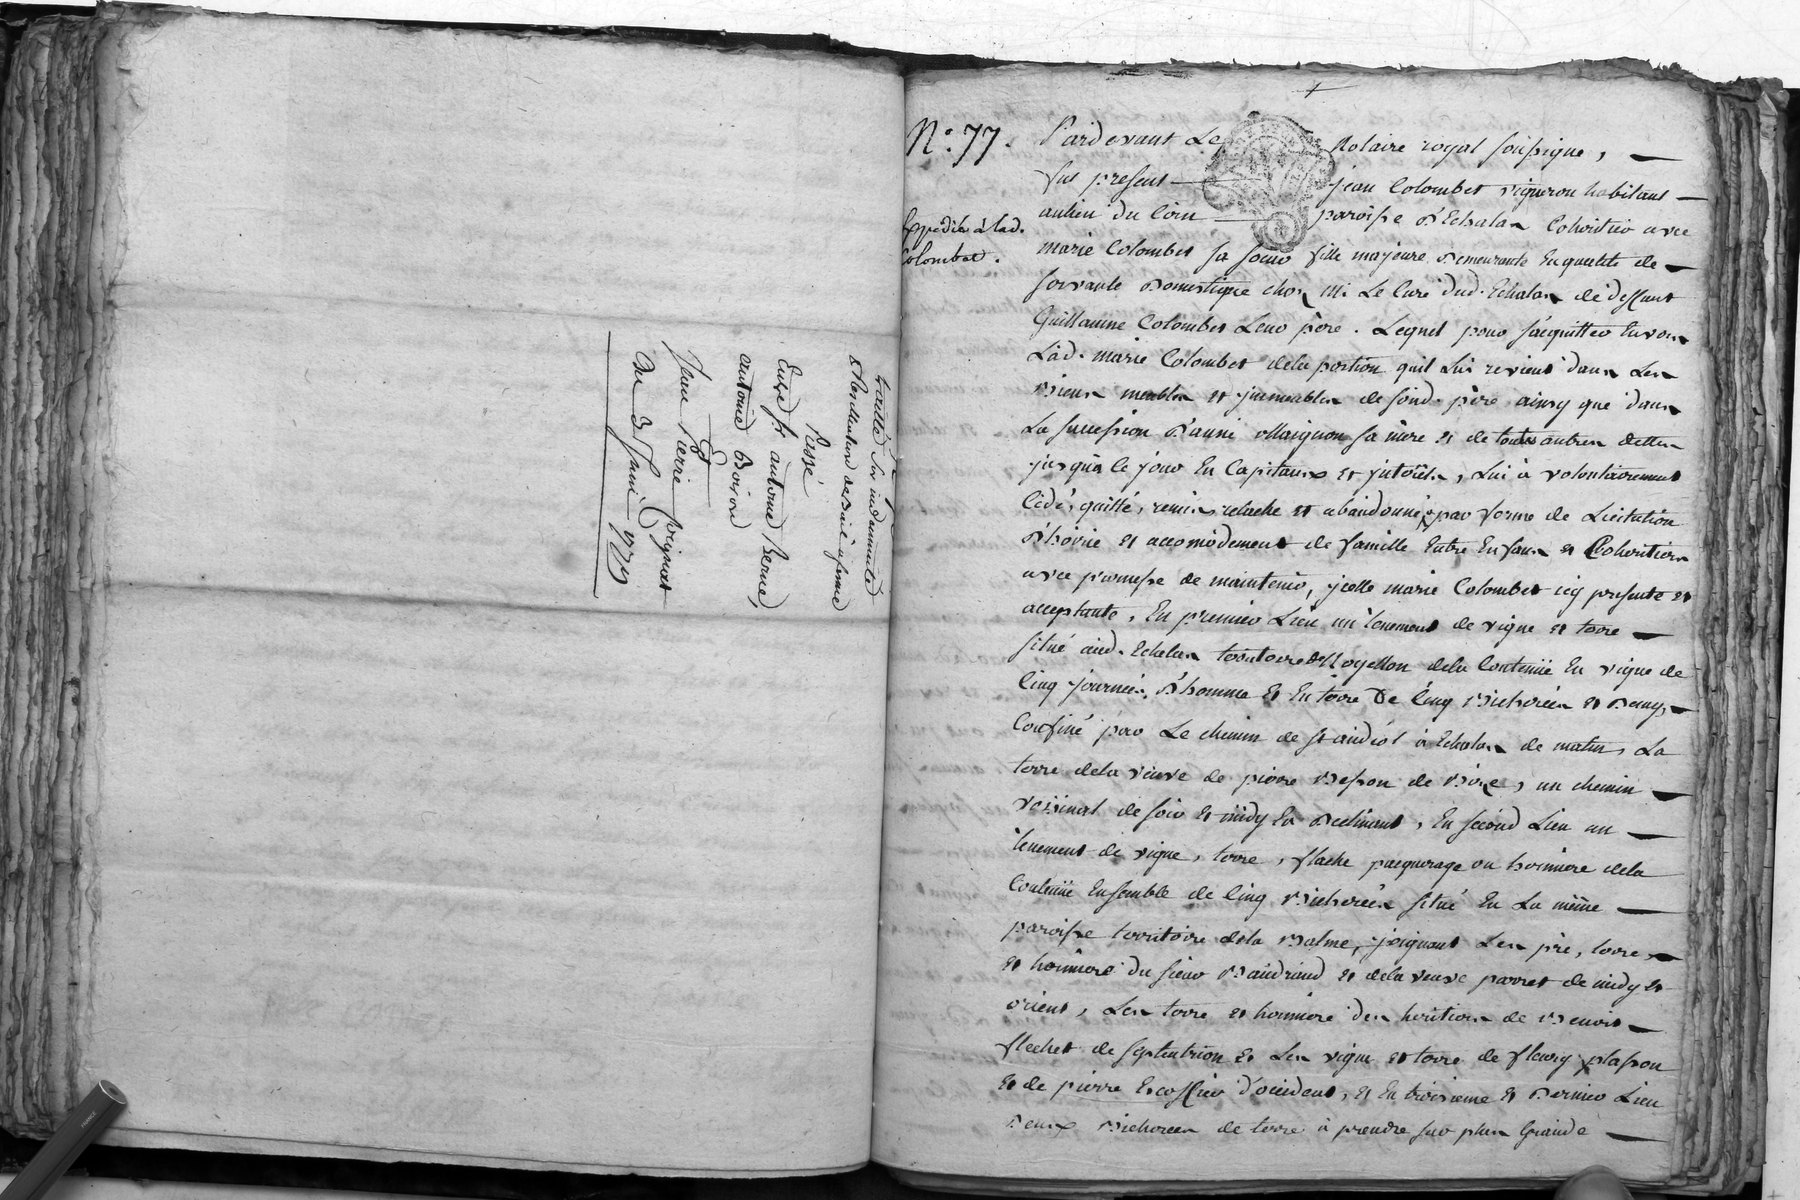 traitté sur indamnité
& Resiliation de Bail a ferme
Passé
Entre Sr. antoine Berne,
antoine Boiron
Et
Jean Pierre Prignat
Du 3 Juin 1775
N.° 77.
Expedié à lad.
Colombet.
Pardevant Le Notaire royal soussigné,
fut present jean Colombet vigneron habitant
au lieu du Coin paroisse d'Echalas Cohéritier avec
marie Colombet sa soeur fille majeure demeurante En qualité de
servante domestique chez Mr Le Curé dud. Echalas de deffunt
Guillaume Colombet Leur père. Lequel pour s'acquitter Envers
Lad. marie Colombet dela portion quil Lui revient dans Les
Biens meubles et jmmeubles de sond. père ainsy que dans
La succession d'anne Maignon sa mère et de toutes autres dettes
jusqu'à ce jour En Capitaux et jntérêts, Lui à volontairement
Cédé, quitté, remis relaché et abandonné, par forme de Licitation
d'hoirie et accomodement de famille Entre Enfans et Cohéritiers
avec promesse de maintenir, jcelle marie Colombet icy presente et
acceptante, En premier Lieu un tenement de vigne et terre
situé aud. Echalas territoire de Noyellon dela Contenüe En vigne de
Cinq journées d'homme et En terre De Cinq Bicherées et Demy,
Confiné par Le chemin de st andéol à Echalas de matin, La
terre dela veuve de pierre Besson de Bize, un chemin
voisinal de soir et midy En declinant, En second Lieu un
tenement de vigne, terre, flache pacquerage ou hermiere dela
Contenüe Ensemble de Cinq Bicherées situé En La même
paroisse territoire dela Balme, joignant Les pré, terre
et hermiere du sieur Bandrand et dela veuve parret de midy et
orient, Les terre et hermiere des heritiers de Benoit
flechet de septentrion et Les vigne et terre de fleury plasson
et de pierre Escoffier d'occident, et En troisieme et Dernier Lieu
Deux Bicherées de terre à prendre sur plus Grande